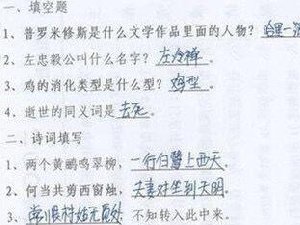 一、填空题
1、普罗米修斯是什么文学作品里面的人物？哈里一
2、左忠毅公叫什么名字？左冷禅。
3、鸡的消化类型是什么型？鸡型。
4、逝世的同义词是 去死。
二、诗词填写
1、两个黄鹂鸣翠柳，一行白鹭上西天。
2、何当共剪西窗烛，夫妻对坐到天明。
3、常恨村姑无 处 不知转入此中来。